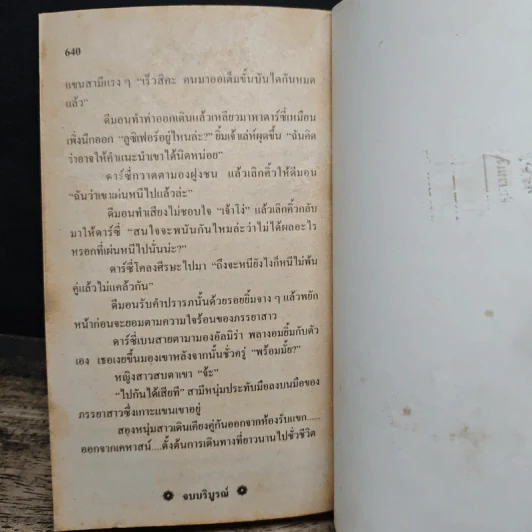 640
แขนสามีแรง ๆ “เร็วสิคะ คนมาออเต็มขั้นบันไดกันหมด
แล้ว”
ดีมอนทำท่าออกเดินแล้วเหลียวมาหาดาร์ซี่เหมือน
เพิ่งนึกออก “ลูซิเฟอร์อยู่ไหนล่ะ?” ยิ้มเจ้าเล่ห์ผุดขึ้น “ฉันคิด
ว่าอาจให้คำแนะนำเขาได้นิดหน่อย”
ดาร์ซี่กวาดตามองฝูงชน แล้วเลิกคิ้วให้ดีมอน
“ฉันว่าเขาเผ่นหนีไปแล้วล่ะ”
ดีมอนทำเสียงไม่ชอบใจ “เจ้าโง่” แล้วเลิกคิ้วกลับ
มาให้ดาร์ซี่ “สนใจจะพนันกันไหมล่ะว่าไม่ได้ผลอะไร
หรอกที่เผ่นหนีไปนั่นน่ะ?”
ดาร์ซี่โคลงศีรษะไปมา “ถึงจะหนียังไงก็หนีไม่พ้น
คู่แล้วไม่แคล้วกัน”
ดีมอนรับคำปรารภนั้นด้วยรอยยิ้มจาง ๆ แล้วพยัก
หน้าก่อนจะยอมตามความใจร้อนของภรรยาสาว
ดาร์ซี่เบนสายตามามองอัลมิร่า พลางอมยิ้มกับตัว
เอง เธอเงยขึ้นมองเขาหลังจากนั้นชั่วครู่ “พร้อมมั้ย?”
หญิงสาวสบตาเขา “จ้ะ”
“ไปกันได้เสียที” สามีหนุ่มประทับมือลงบนมือของ
ภรรยาสาวซึ่งเกาะแขนเขาอยู่
สองหนุ่มสาวเดินเคียงคู่กันออกจากห้องรับแขก.....
ออกจากเคหาสน์....ตั้งต้นการเดินทางที่ยาวนานไปชั่วชีวิต
จบบริบูรณ์